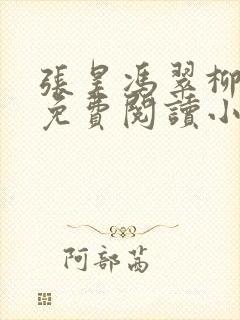 張皇馮翠柳
免費閱讀小
阿部茜